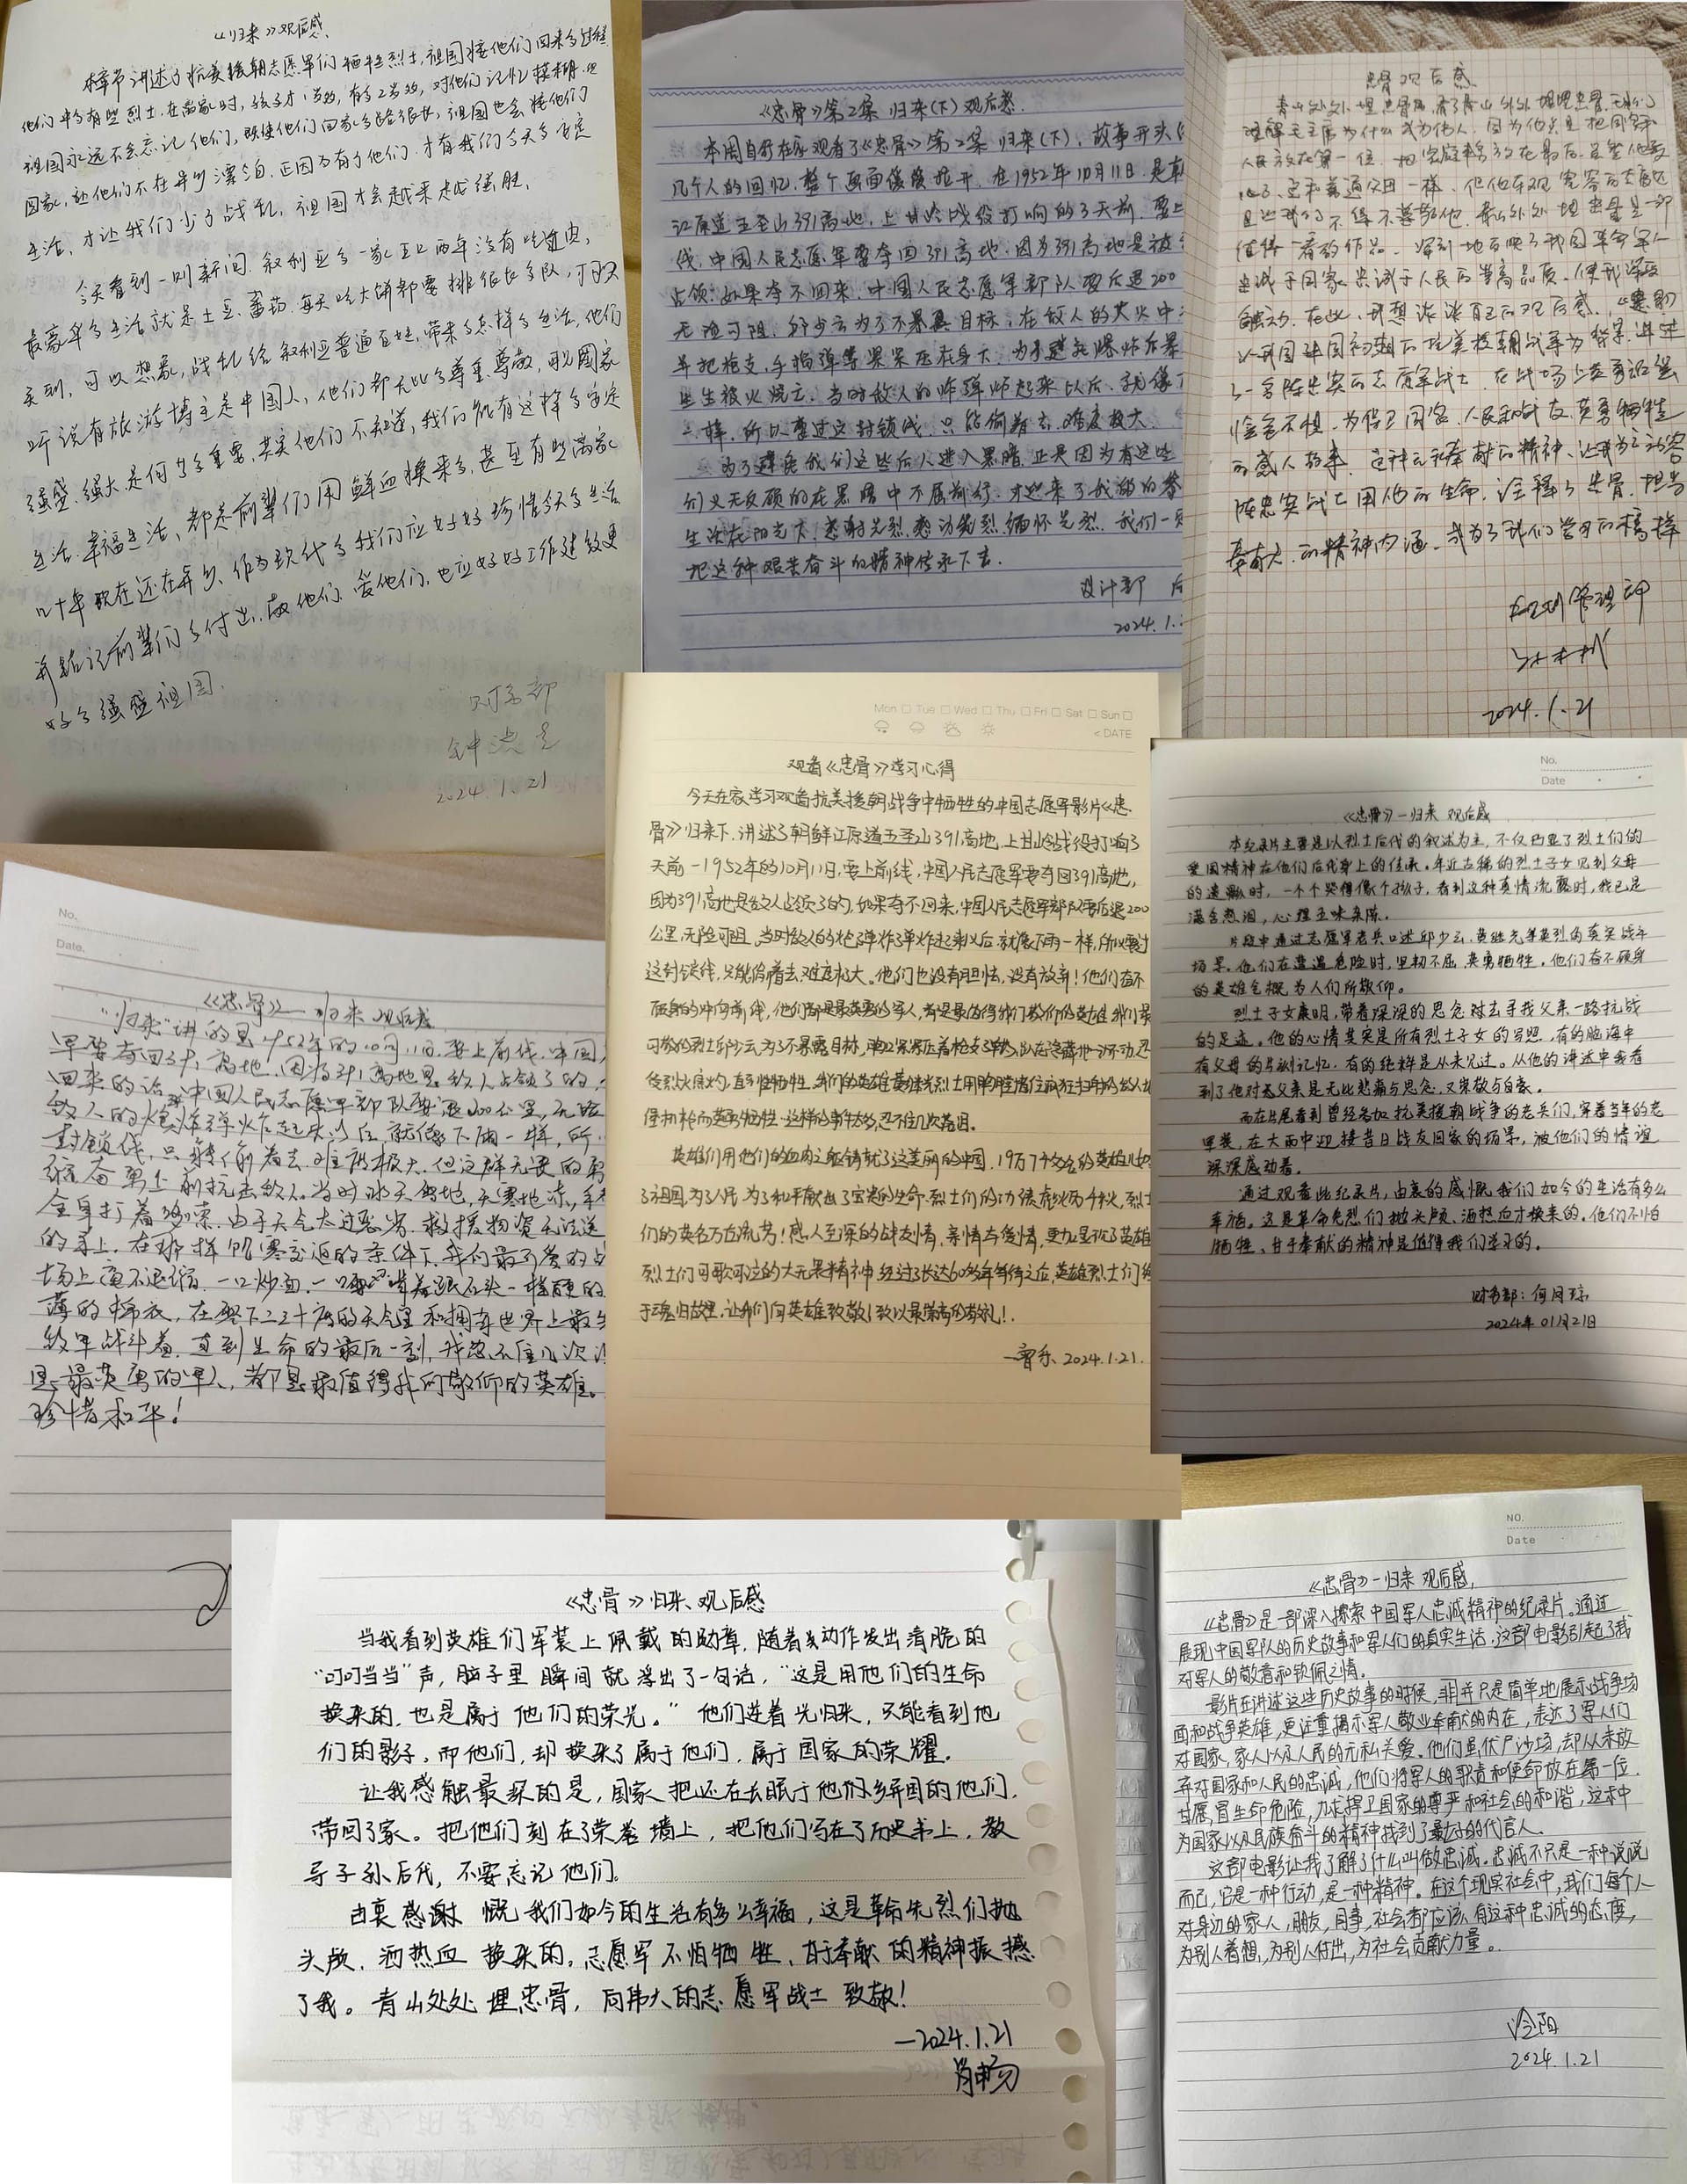 《归来》观后感
本章节讲述了抗美援朝志愿军们牺牲烈士,祖国接他们回来的过程
他们中的有些烈士,在离家时,孩子才1岁的,有的2岁的,对他们记忆模糊.但
祖国永远不会忘记他们,既使他们回家的路很长,祖国也会接他们
回家,让他们不在异乡漂泊.正因为有了他们.才有我们今天的安定
生活,才让我们少了战乱,祖国才会越来越强胜.
今天看到一则新闻.叙利亚的一家五口两年没有吃过肉,
最豪华的生活就是土豆.番茄.每天吃大饼都要排很长的队,
可以想象,战乱给叙利亚普通百姓,带来了怎样的生活,他们
听说有旅游博主是中国人,他们都无比的尊重.尊敬,可见国家
强盛.强大是何等的重要,其实他们不知道,我们能有这样的安定
生活.幸福生活,都是前辈们用鲜血换来的,甚至有些离家
几十年现在还在异乡、作为现代的我们应好好珍惜今天的生活
并铭记前辈们的付出,敬他们.爱他们,也应好好工作建设更
好的强盛祖国.
财务部
2024.1.21
《忠骨》第2集 归来(下)观后感.
本周自行在家观看了《忠骨》第2集 归来(下),故事开头
几个人的回忆,整个画面缓缓拉开,在1952年10月11日.是朝
江原道五圣山391高地,上甘岭战役打响的3天前.要上
线,中国人民志愿军要夺回391高地.因为391高地是被
占领.如果夺不回来,中国人民志愿军部队要后退200
无险可阻,邱少云为了不暴露目标,在敌人的炎火中
并把枪支,手榴弹等紧紧压在身下,为了避免爆炸后暴
生生被火烧亡.当时敌人的炸弹炸起来以后,就像下
一样.所以要过这封锁线,只能偷着去,难度极大.
为了避免我们这些后人进入黑暗,正是因为有这些
们义无反顾的在黑暗中不屈前行,才迎来了我们的
生活在阳光下.感谢先烈.感动先烈.缅怀先烈.我们一
把这种艰苦奋斗的精神传承下去.
设计部
2024.1.
忠骨观后感
青山处处埋忠骨
理解毛主席为什么成为伟人,因为他总是把国家和
人民放在第一位,把家庭
值得一看的作品.深刻地反映了我国革命军人
忠诚于国家忠诚于人民的崇高品质.使我深受
触动.在此,我想谈谈自己的观后感.
以我国建国初期的抗美援朝战争为背景,讲述
了一名陈忠实的志愿军战士,在战场上英勇顽强
临危不惧.为保卫国家,人民和战友英勇牺牲
的感人故事.这种无私奉献的精神,让我为之动容
陈忠实战士用他的生命,诠释了忠骨.担当
奉献.的精神内涵.成为了我们学习的榜样
管理部
2024.1.21
Mon Tue Wed Thu Fri Sat Sun
<DATE
观看《忠骨》学习心得
今天在家学习观看抗美援朝战争中牺牲的中国志愿军影片《忠
骨》归来下.讲述了朝鲜江原道五圣山391高地,上甘岭战役打响3
天前-1952年的10月11日,要上前线,中国人民志愿军要夺回391高地,
因为391高地是敌人占领了的,如果夺不回来,中国人民志愿军部队要后退200
公里,无险可阻,当时敌人的炮弹炸弹炸起来以后,就像下雨一样,所以要过
这封锁线,只能偷着去,难度极大。他们也没有胆怯,没有放弃!他们奋不
顾身的冲向前线,他们都是最英勇的军人,都是最值得我们敬仰的英雄.我们最
可敬的烈士邱少云,为了不暴露目标,
使到火腐灼,直到牺牲.我们的英雄黄继光烈士用胸膛堵住疯狂扫射的敌人
堡机枪而英勇牺牲.这样的事件太多,忍不住几次落泪。
英雄们用他们的血肉之躯铸就了这美丽的中国.19万7千多名的英雄儿
了祖国,为了人民,为了和平献出了宝贵的生命.烈士们的功德彪炳千秋,烈士
们的英名万古流芳!感人至深的战友情,亲情与爱情,更加显现了英雄
烈士们可歌可泣的大无畏精神,经过了长达60多年等待之后,英雄烈士们终
于魂归故里,让我们向英雄致敬!致以最崇高的敬礼!.
2024.1.21.
No.
Date
《忠骨》-归来 观后感
本纪录片主要是以烈士后代的叙述为主,不仅凸显了烈士们的
爱国精神在他们后代身上的传承.年近古稀的烈士子女见到父母
的遗物时,一个个哭得像个孩子,看到这种真情流露时,我已是
满含热泪,心里五味杂陈。
片段中通过志愿军老兵口述邱少云,黄继光等英烈的真实战斗
场景,他们在遭遇危险时,坚韧不屈,英勇牺牲.他们奋不顾身
的英雄气概为人们所敬仰。
烈士子女康明,带着深深的思念对去寻找父亲一路抗战
的足迹。他的心情其实是所有烈士子女的写照,有的脑海中
有父母的片刻记忆.有的纯粹是从未见过。从他的讲述中我看
到了他对老父亲是无比悲痛与思念.又崇敬与自豪。
而在片尾看到曾经参加抗美援朝战争的老兵们,穿着当年的老
军装,在大雨中迎接昔日战友回家的场景,被他们的情谊
深深感动着。
通过观看此纪录片,由衷的感慨我们如今的生活有多么
幸福。这是革命先烈们抛头颅、洒热血才换来的,他们不怕
牺牲、甘于奉献的精神是值得我们学习的。
财务部:何月琼
2024年01月21日
No.
Date.
《忠骨》——归来 观后感
“归来”讲的是1952年的10月11日.要上前线.中国
军要夺回391高地.因为391高地是敌人占领了的,
回来的话,中国人民志愿军部队要退200公里,无险
敌人的炮弹炸弹炸起来以后,就像下雨一样,所
封锁线,只能偷着去.难度极大.但这群无畏的勇
奋勇上前抗击敌人。当时冰天雪地,天寒地冻,
全身打着哆嗦.由于天气太过恶劣.救援物资无法送
的手上,在那样饥寒交迫的条件下,我们最可爱的战
场上毫不退缩.一口炒面,一口雪,啃着跟石头一样硬的
薄的棉衣,在零下二三十度的天气里和拥有世界上最先
敌军战斗着.直到生命的最后一刻,我忍不住几次
是最英勇的军人,都是最值得我们敬仰的英雄。
珍惜和平!
《忠骨》归来、观后感
当我看到英雄们军装上佩戴的勋章,随着走动作发出清脆的
“叮叮当当”声,脑子里瞬间就浮出了一句话,“这是用他们的生命
换来的,也是属于他们的荣光。”他们迸着光归来,只能看到他
们的影子,而他们,却换来了属于他们,属于国家的荣耀。
让我感触最深的是,国家把还在长眠于他们乡异国的他们,
带回了家。把他们刻在了荣誉墙上,把他们写在了历史书上,教
导子孙后代,不要忘记他们。
由衷感谢 慨我们如今的生活有多么幸福,这是革命先烈们抛
头颅,洒热血换来的,志愿军不怕牺牲,甘于奉献的精神振撼
了我。青山处处埋忠骨,向伟大的志愿军战士致敬!
—2024.1.21
肖畅
NO.
Date
《忠骨》-归来 观后感,
《忠骨》是一部深入探索中国军人忠诚精神的纪录片。通过
展现中国军队的历史故事和军人们的真实生活,这部电影引起了我
对军人的敬意和钦佩之情。
影片在讲述这些历史故事的时候,非并只是简单地展示战争场
面和战争英雄,更注重揭示军人敬业奉献的内在,表达了军人们
对国家,家人以及人民的无私关爱。他们虽伏尸沙场,却从未放
弃对国家和人民的忠诚,他们将军人的职责和使命放在第一位.
甘愿冒生命危险,力求捍卫国家的尊严和社会的和谐,这种
为国家以及民族奋斗的精神找到了最好的代言人.
这部电影让我了解了什么叫做忠诚.忠诚不只是一种说说
而已,它是一种行动,是一种精神。在这个现实社会中,我们每个人
对身边的家人,朋友,同事,社会都应该有这种忠诚的态度,
为别人着想,为别人付出,为社会贡献力量。
冷阳
2024.1.21